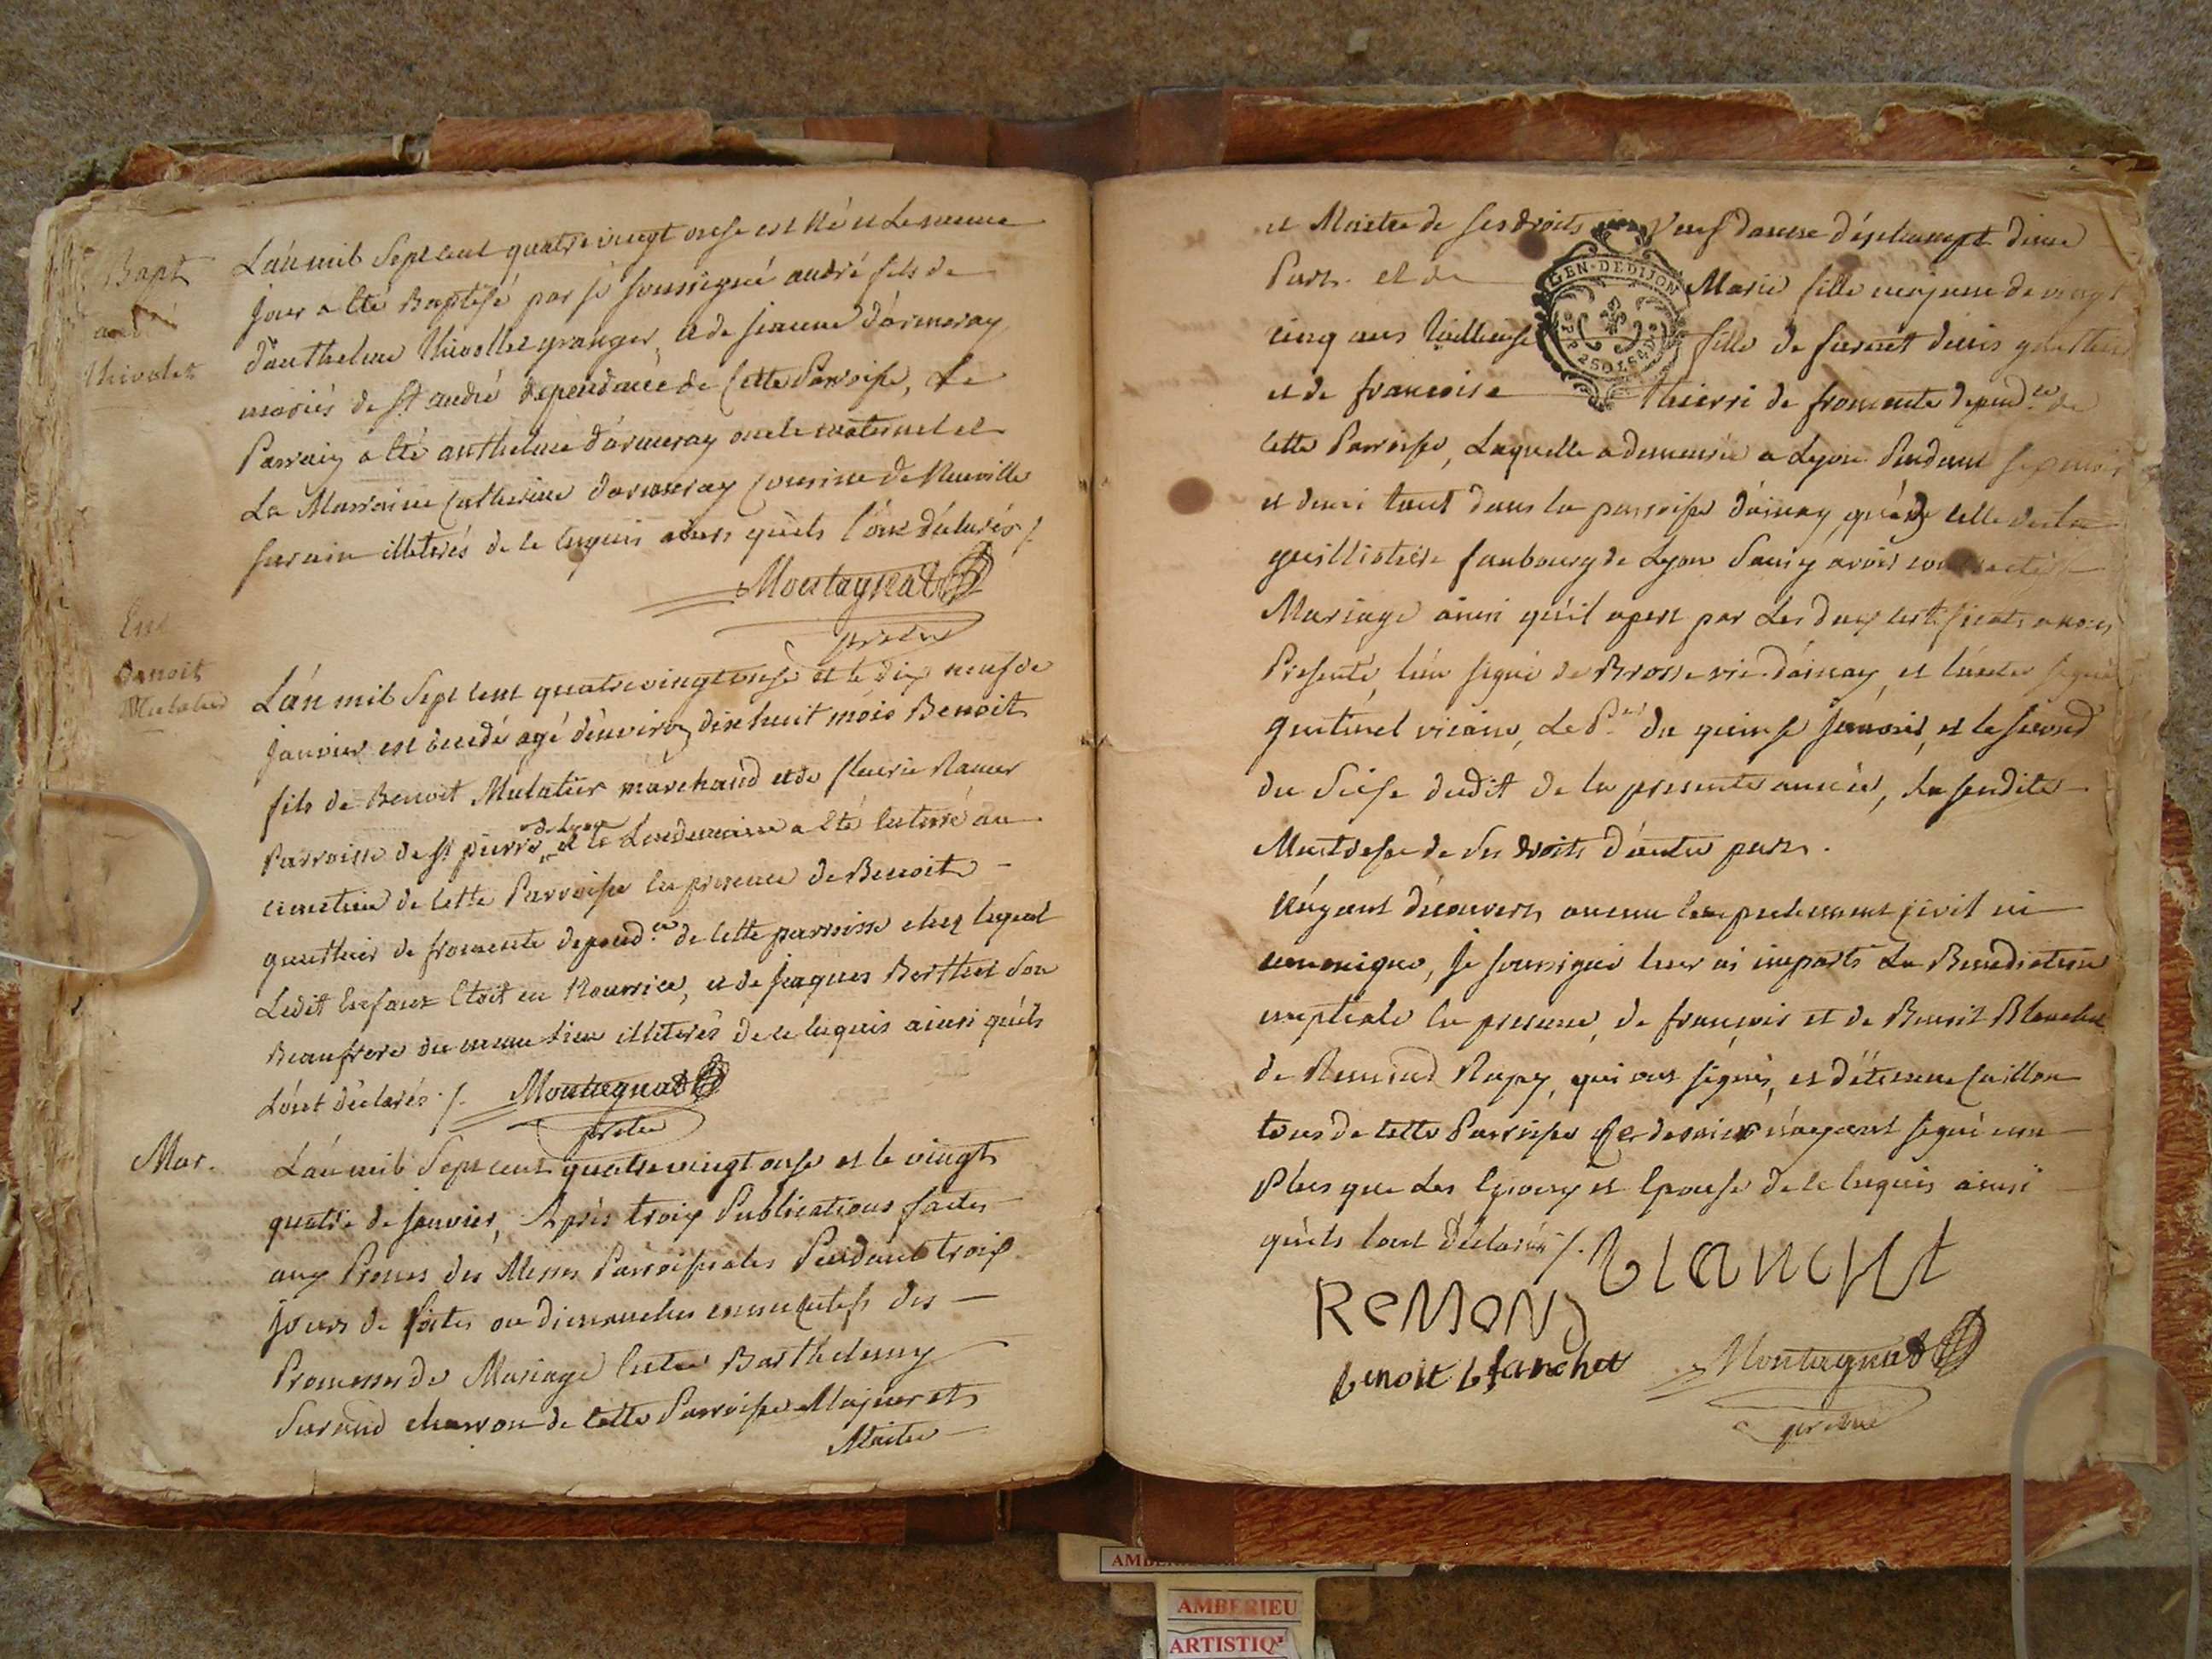 Bapt
andré
thivolet
L'an mil Sept cent quatre vingt onse est né et Le meme
jour a été Baptisé par je soussigné andré fils de
d'anthelme thivollet granger, et de jeanne d'armeray
mariés de St andré dependance de Cette Parroisse, Le
Parrain a été anthelme d'armeray oncle maternel et
La Marraine Catherine darmeray Cousine de Neuville
sur ain illiterés de ce enquis ainsi qu'ils l'ont déclarés /.
Montagnat
pretre
Ent
Benoit
Mulatier
L'an mil Sept cent quatrevingt onse et le dix neuf de
janvier est decedé agé d'environ dix huit mois Benoit
fils de Benoit Mulatier marchand et de fleurie
Parroisse de St pierre et le Lendemain a été enterré au
de Lyon
cimetiere de Cette Parroisse en presence de Benoit
gauthier de fromente depend.ce de Cette parroisse chez lequel
Ledit Enfant Etoit en Nourrice, et de jaques Berthet son
Beaufrere du meme lieu illiterés de ce enquis ainsi qu'ils
L'ont déclarés /. Montagnat
pretre
Mar.
L'an mil Sept cent quatrevingt onse et le vingt
quatre de janvier, Après trois Publications faites
aux Prones des Messes Parroissiales Pendant trois
jours de fêtes ou dimanches consecutifs des
Promesses de Mariage Entre Barthelemy
charron de Cette Parroisse Majeur et
Maitre
et Maitre de ses droits Veuf d'une
Part. et de Marie fille majeure de vingt
cinq ans tailleuse fille de
et de francoise thierri de fromente depend.ce de
Cette Parroisse, Laquelle a demeurée a Lyon Pendant
et demi tant dans la parroisse d'ainay, qu'en celle de la
guillotiere faubourg de Lyon Sans y avoir contracté
Mariage ainsi qu'il apert par Les deux certificats a nous
Presenté, l'un signé de Brosse vic. d'ainay, et l'autre signé
vicaire, Le P.er du quinse janvier, et le second
du Seise dudit de la presente année, La susdite
Maitresse de ses droits d'autre part.
N'ayant découvert aucun Empechement civil ni
canonique, je soussigné leur ai imparti La Benediction
nuptiale En presence, de françois et de Benoit Blanchet
de Remond qui ont signés, et d'étienne
tous de Cette Parroisse Ce dernier n'ayant signé non
Plus que Les Epoux et Epouse de ce enquis ainsi
qu'ils l'ont Déclarés /. blanchet
Remond
benoit blanchet Montagnat
pretre
GEN. DE DIJON
AMBERIEU
ARTISTIQ